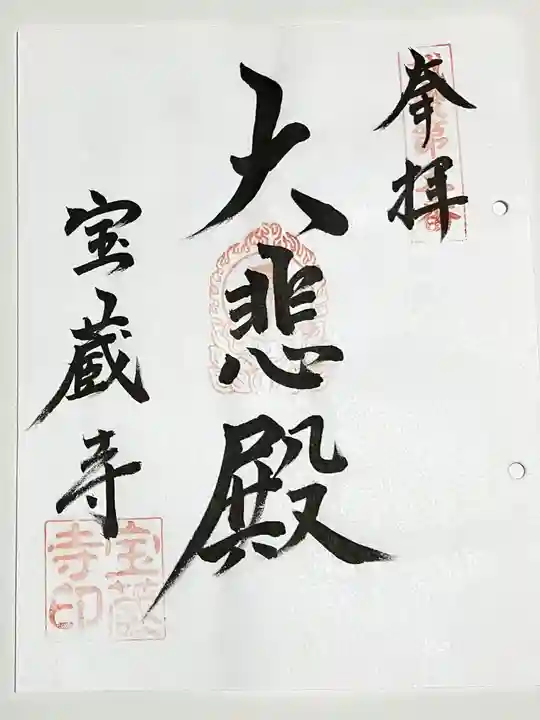 奉拝
大悲殿
宝蔵寺
宝蔵
寺印